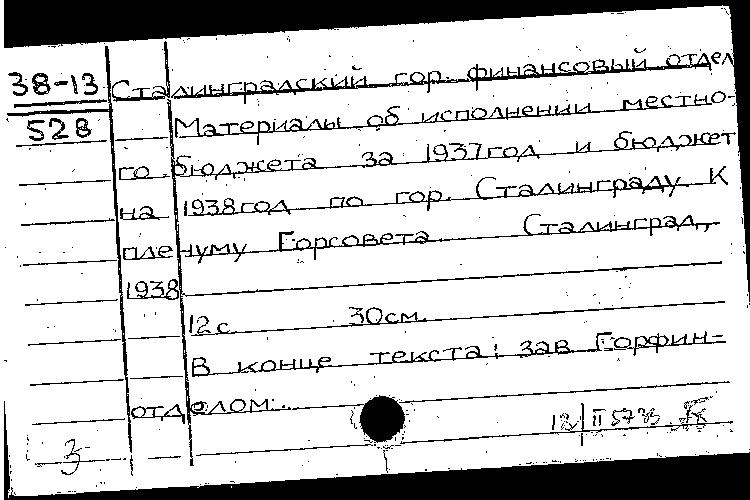 38-13 Сталинградский гор. финансовый отдел
528 Материалы об исполнении местно-
го бюджета за 1937год и бюджет
на 1938год по гор. Сталинграду К
пленуму Горсовета Сталинград,
1938
12с 30см.
В конце текста: зав Горфин-
отделом.
12 II 57
3